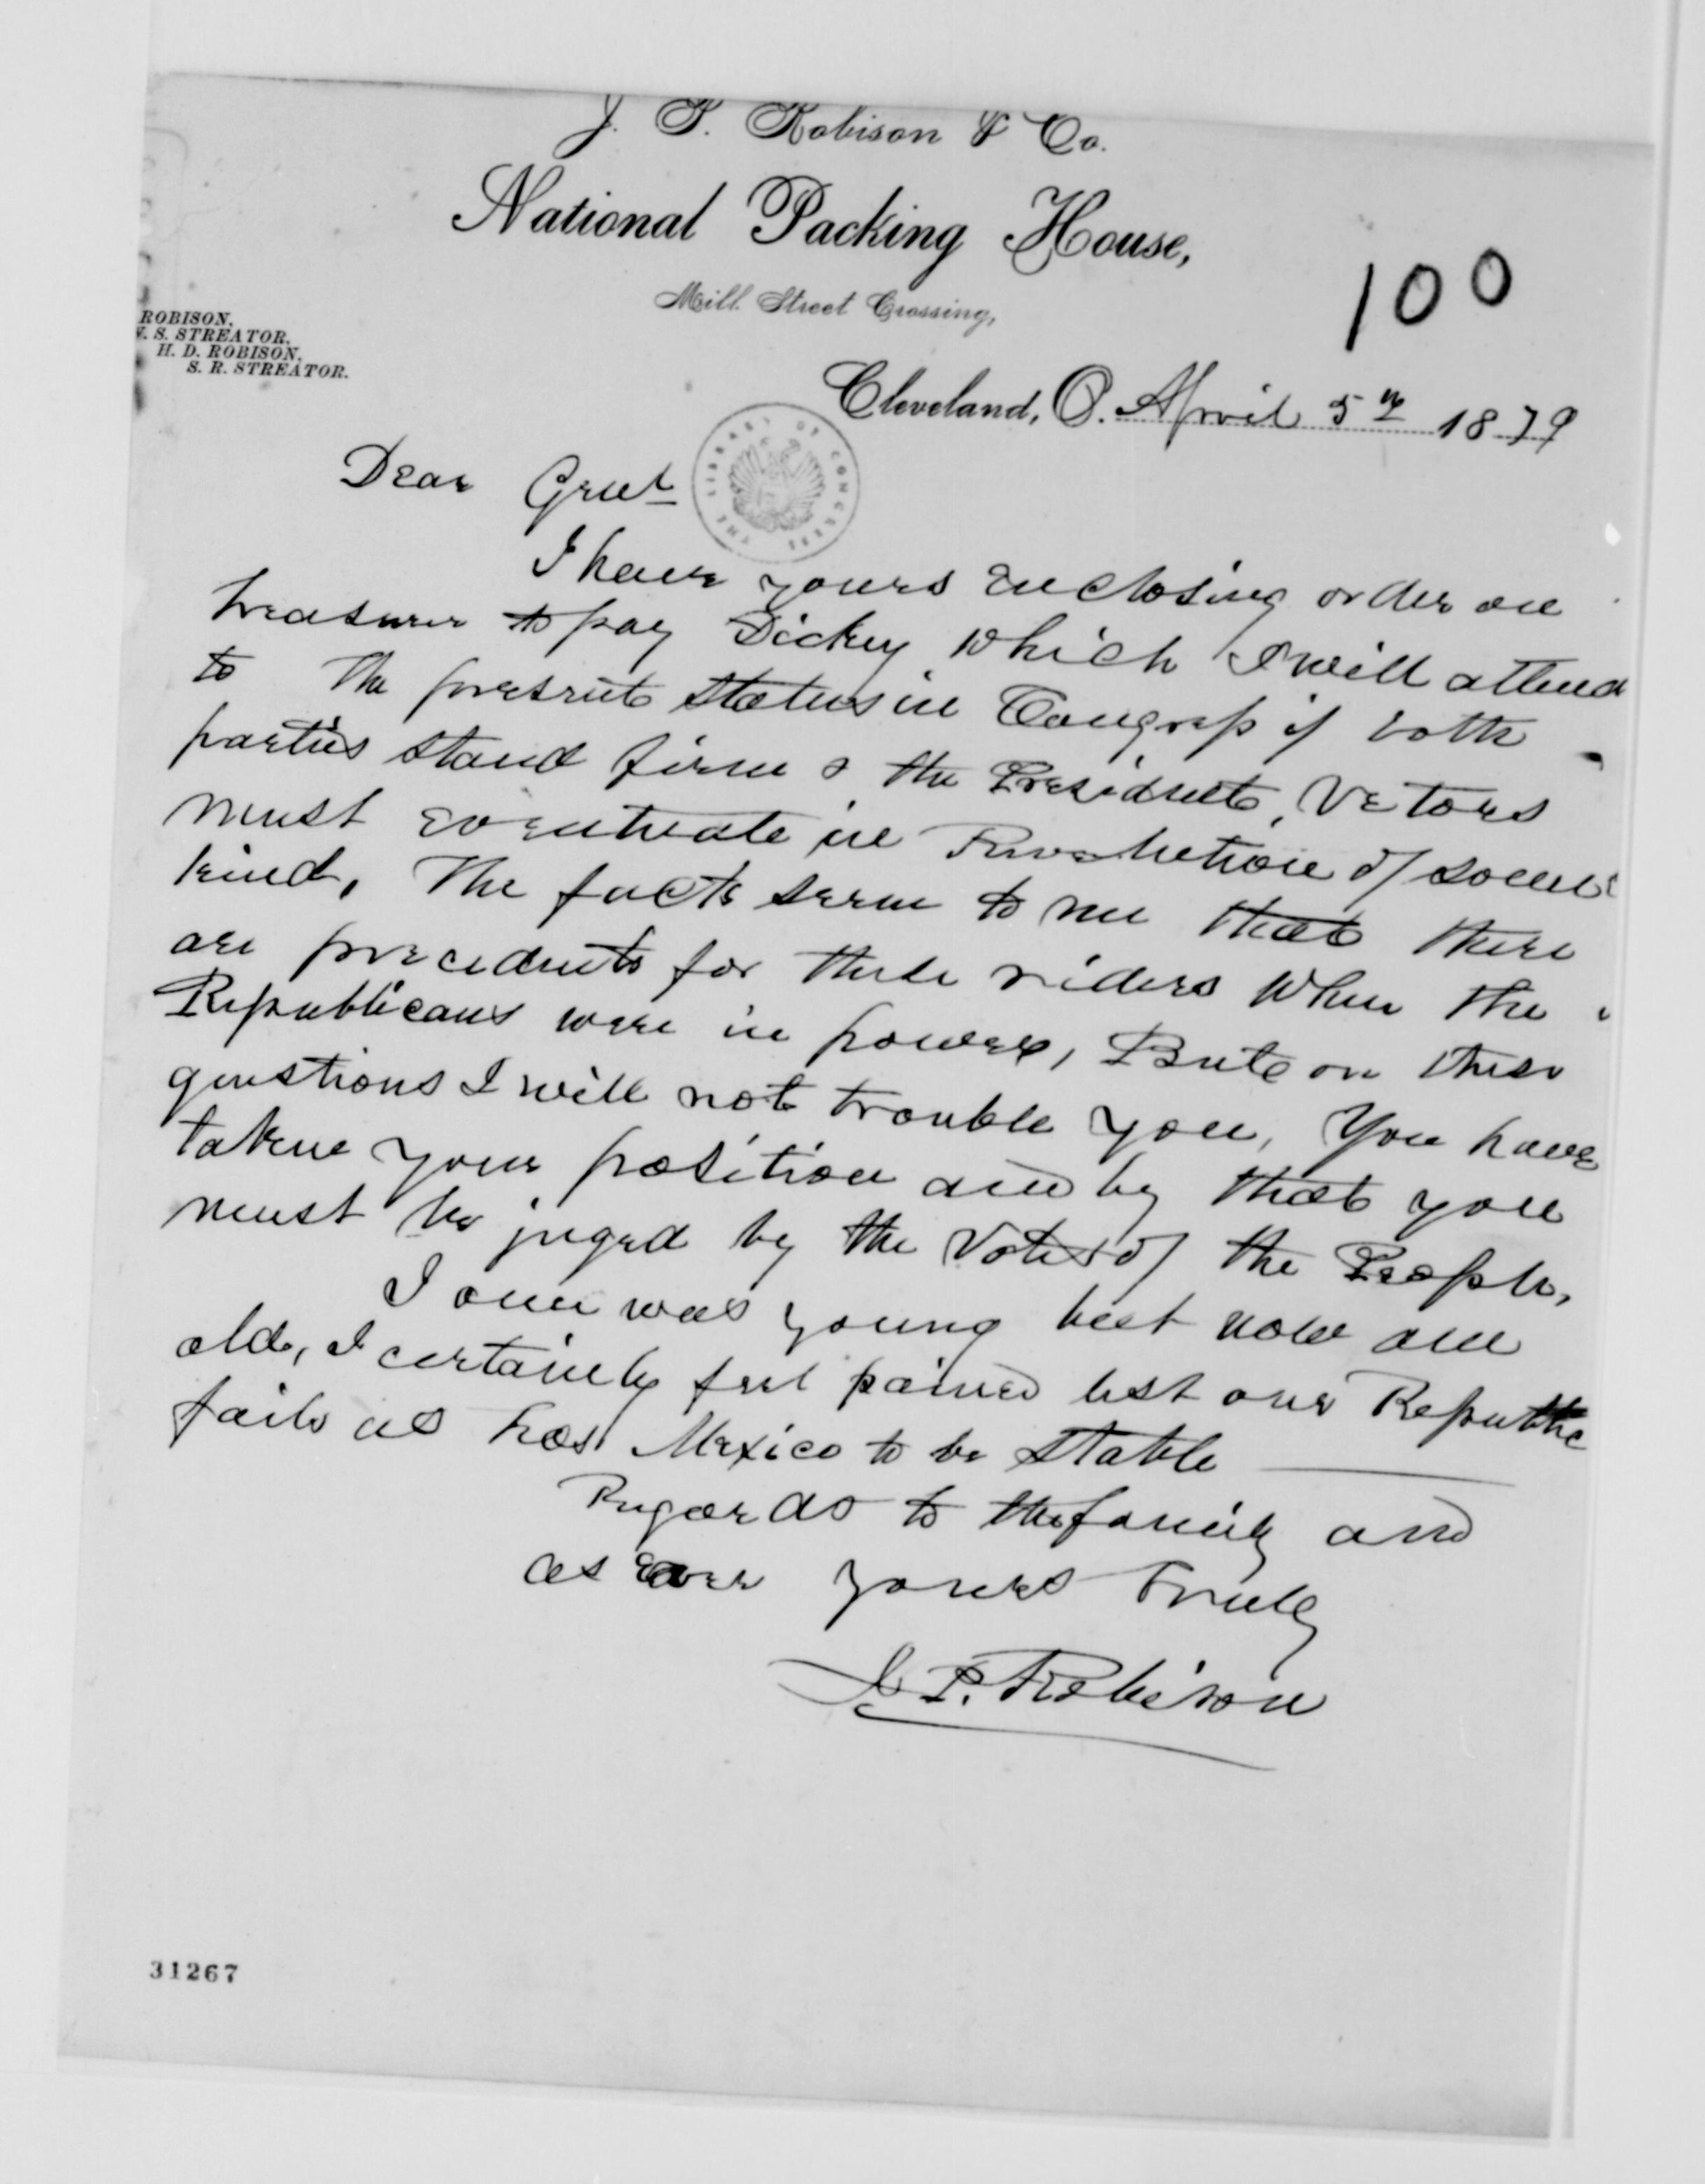 J. P. Robison & Co.
National Packing House,
Mill Street Crossing,
100
ROBISON.
W. S. STREATOR.
H. D. ROBISON.
S. R. STREATOR.
Cleveland, O. April 5th 1879
THE LIBRARY OF CONGRESS
Dear Genl
I have yours enclosing order on
treasurer to pay Dickey which I will attend
to The present status in Congress if both
parties stand firm & the President Vetoes
must eventuate in Revolution of some
kind, The facts seem to me that there
are precedents for these riders when the
Republicans were in power, But on these
questions I will not trouble you, You have
taken your position and by that you
must be juged by the Votes of the People,
I once was young but now am
old, I certainly feel pained lest our Republic
fails as has Mexico to be stable
Regards to the family and
as ever yours truly
J. P. Robison
31267